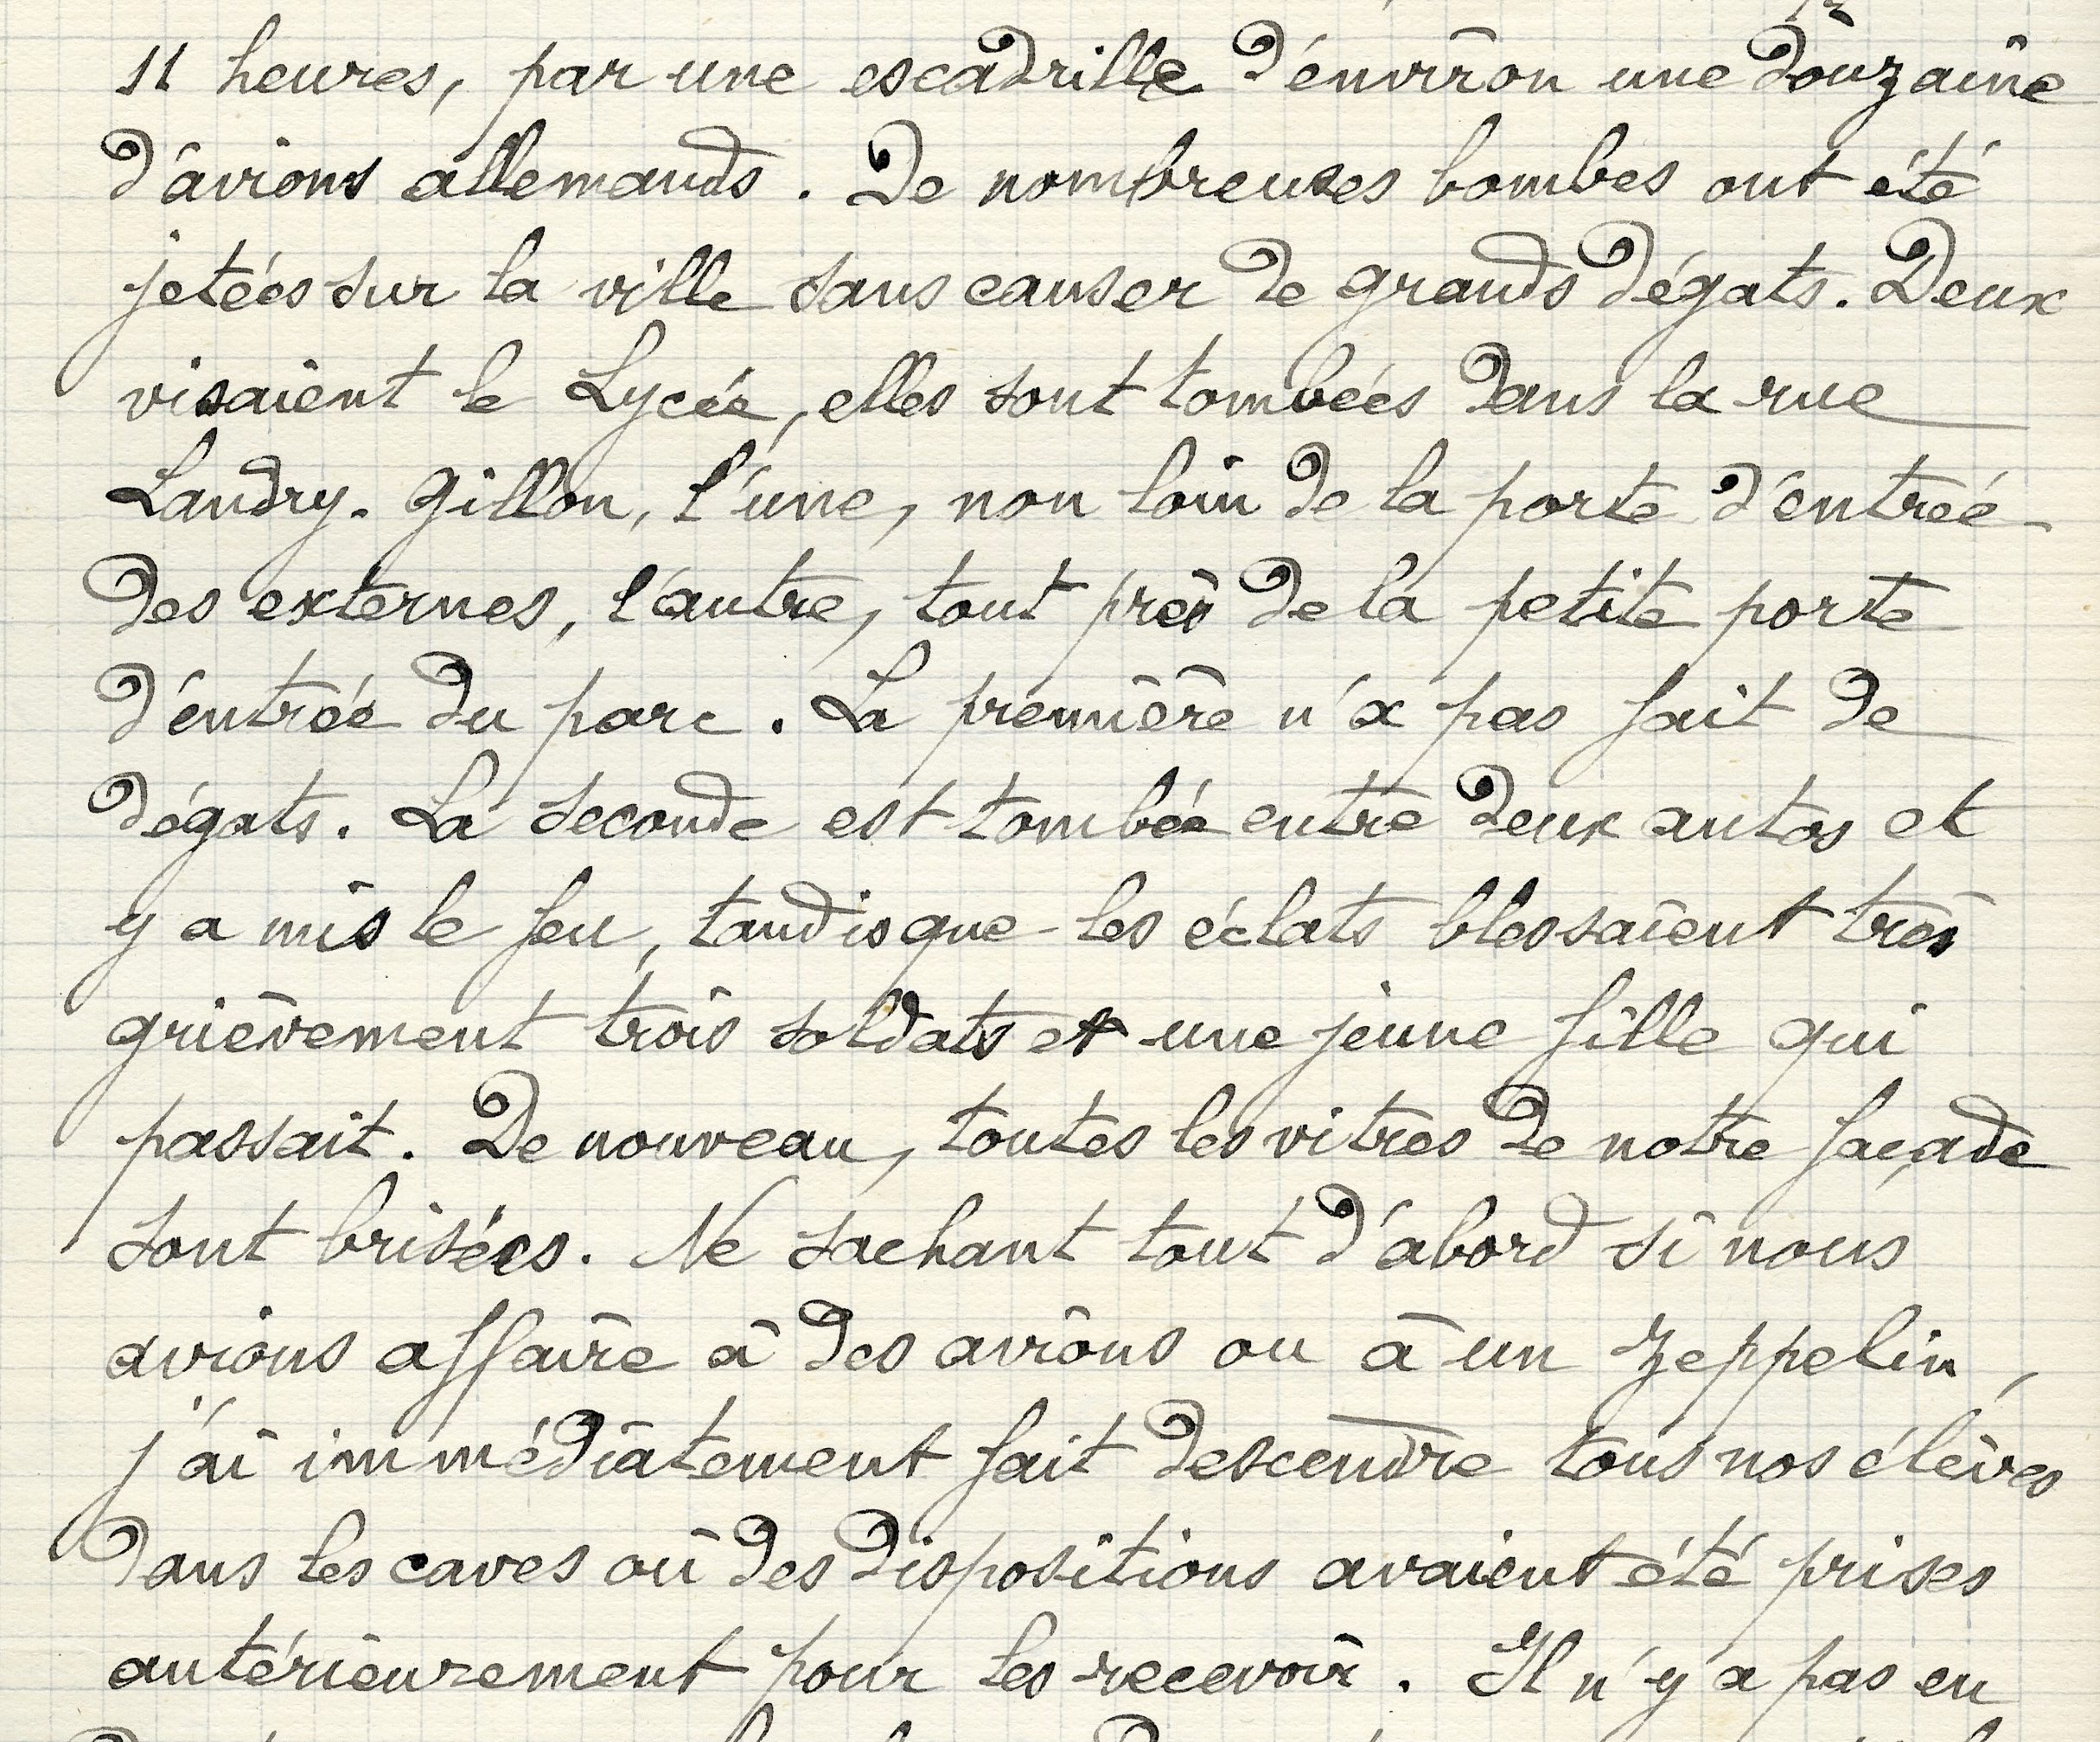 11 heures, par une escadrille d'environ une douzaine
d'avions allemands. De nombreuses bombes ont été
jetées sur la ville sans causer de grands dégats. Deux
visaient le Lycée, elles sont tombées dans la rue
Landry-Gillon, l'une, non loin de la porte d'entrée
des externes, l'autre, tout près de la petite porte
d'entrée du parc. La première n'a pas fait de
dégats. La seconde est tombée entre deux autos et
y a mis le feu, tandis que les éclats blessaient très
grièvement trois soldats et une jeune fille qui
passait. De nouveau, toutes les vitres de notre façade
sont brisées. Ne sachant tout d'abord si nous
avions affaire à des avions ou à un Zeppelin,
j'ai immédiatement fait descendre tous nos élèves
dans les caves où des dispositions avaient été prises
antérieurement pour les recevoir. Il n'y a pas eu